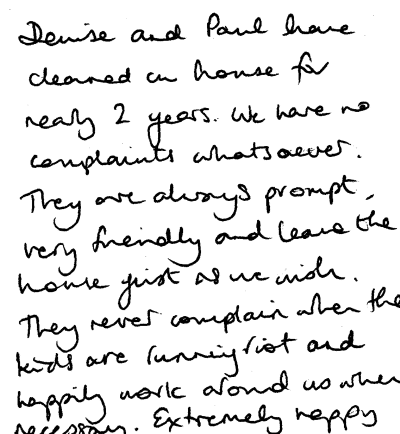 Denise and Paul have
cleaned our house for
nearly 2 years. We have no
complaints whatsoever.
They are always prompt,
very friendly and leave the
house just as we wish.
They never complain when the
kids are running riot and
happily work around us when
necessary. Extremely happy